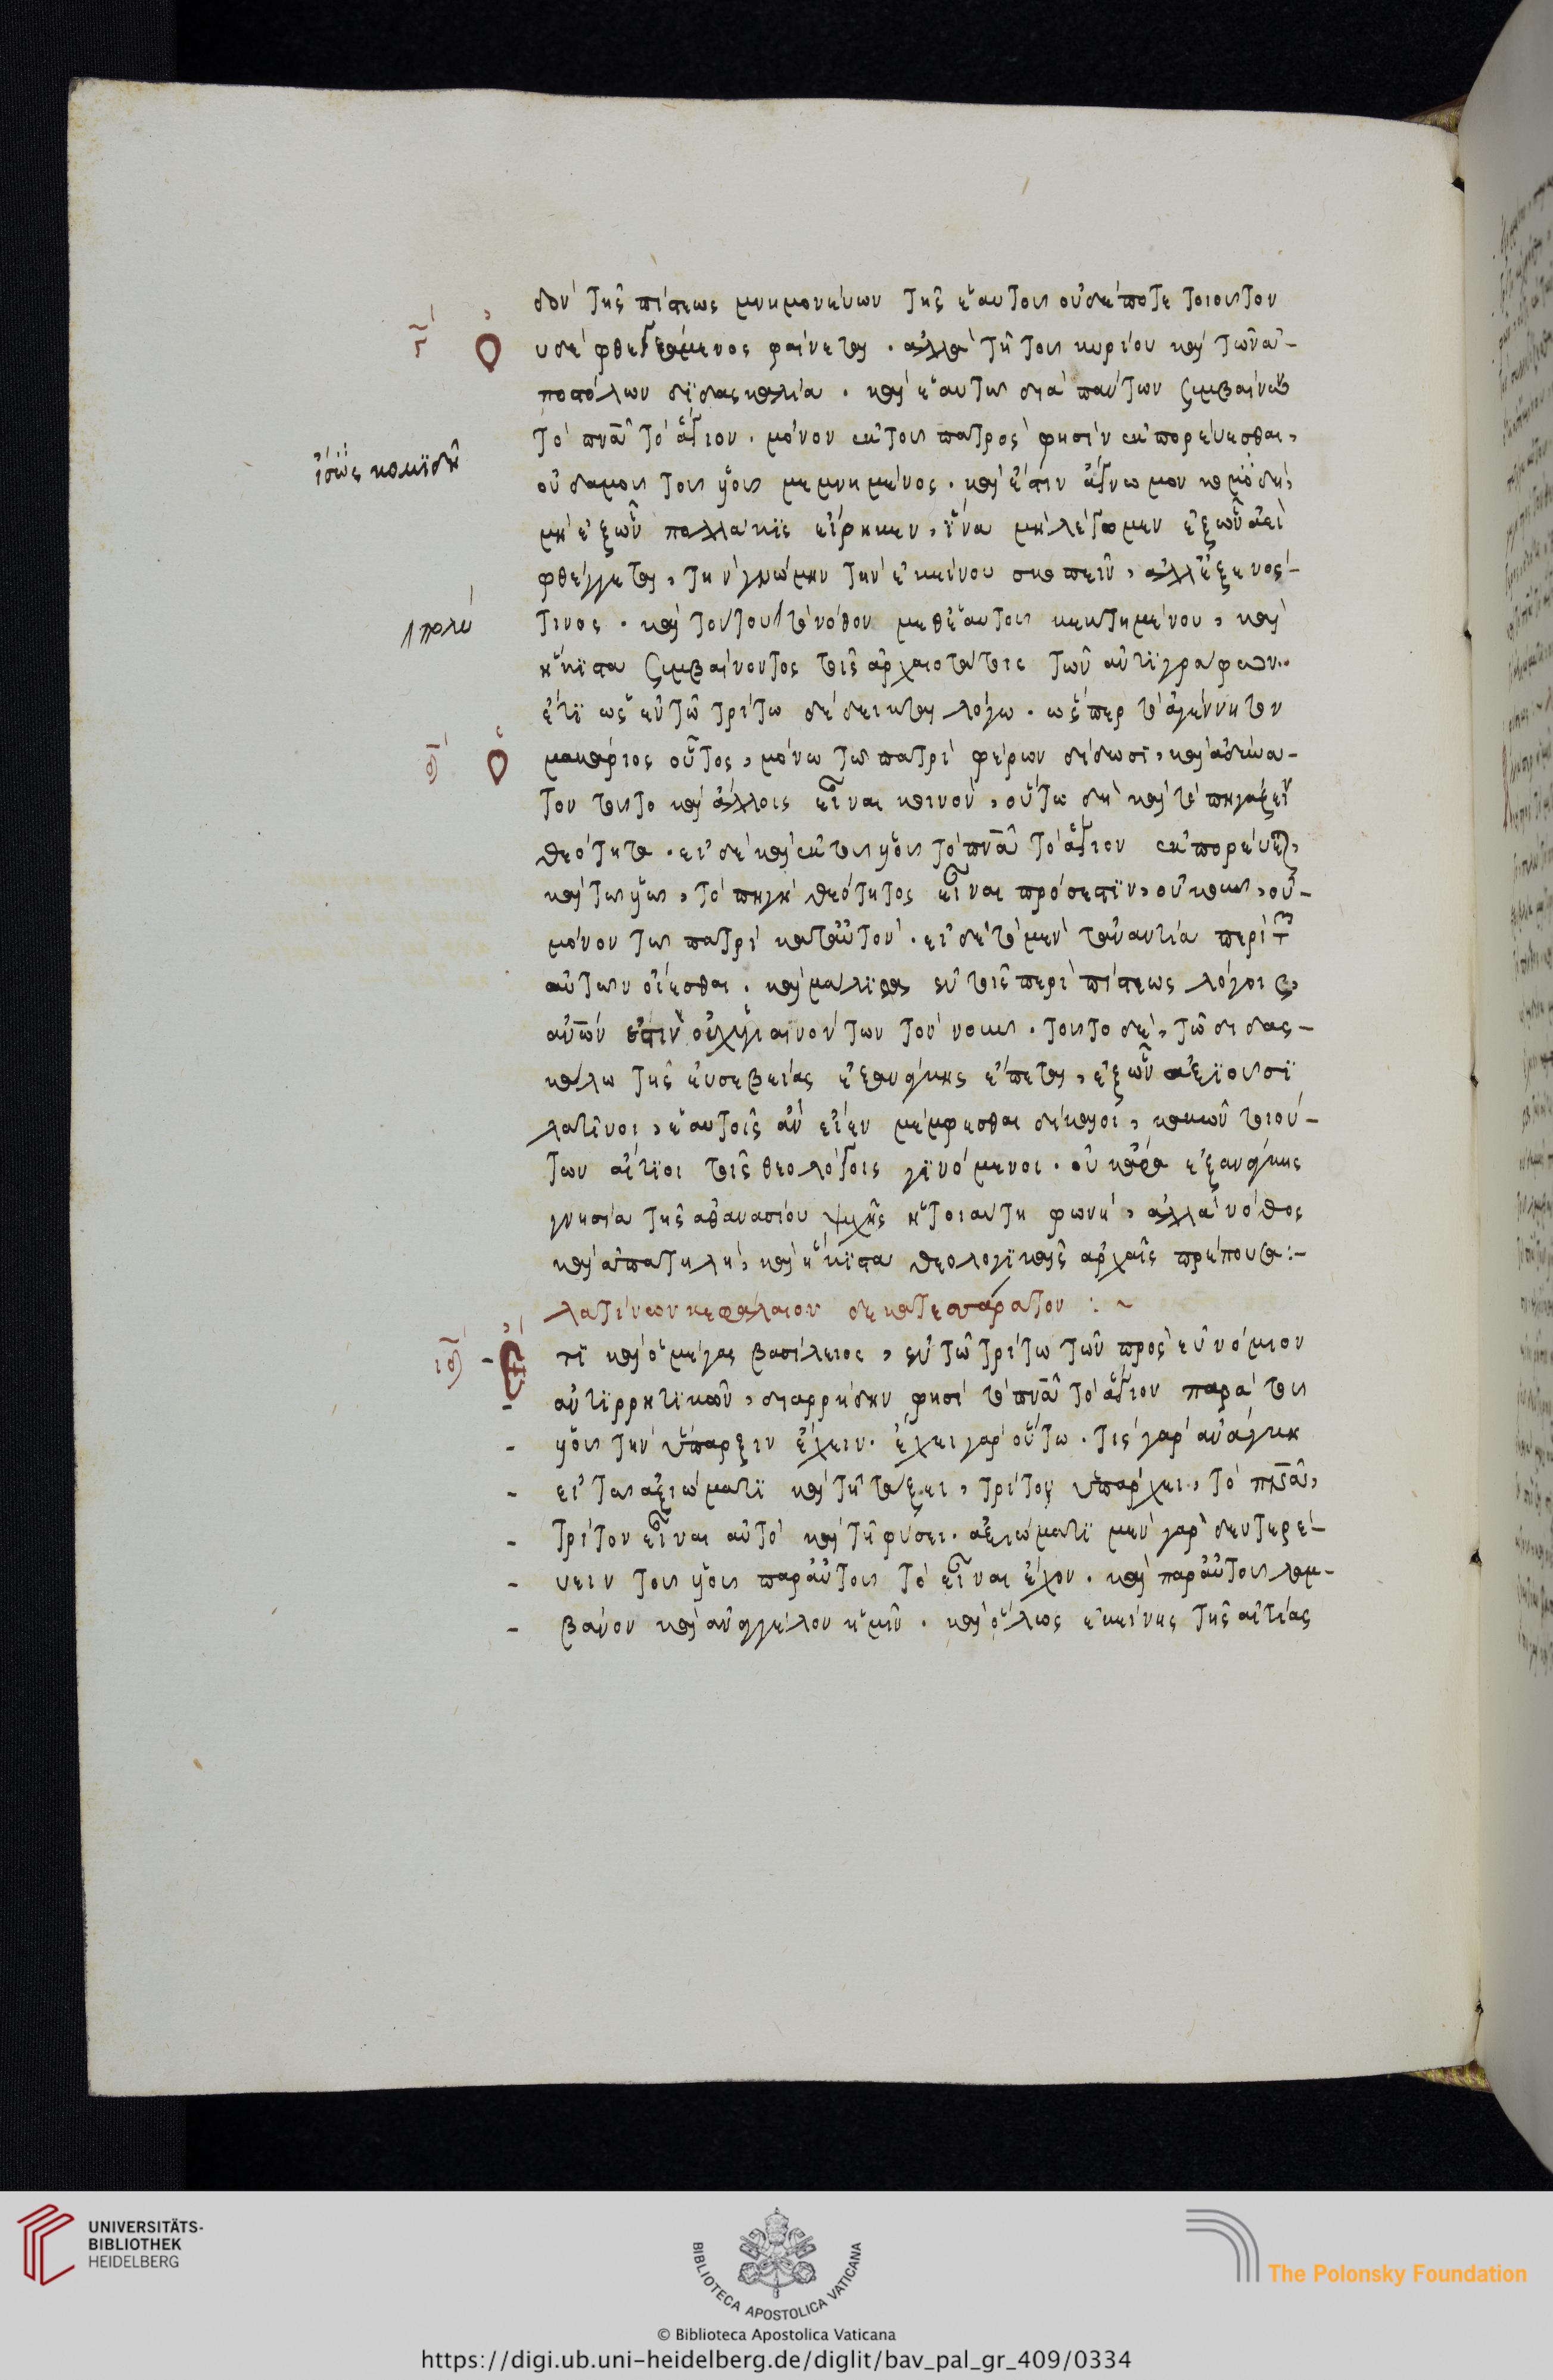 δὸν τῆς πίστεως μνημονεύων τῆς ἑαυτοῦ οὐδέποτε τοιοῦτον
ϛ ὁ
υδὲ φθεγξάμενος φαίνεται. ἀλλὰ τῆ τοῦ κυρίου καὶ τῶν ἀ-
ποστόλων διδασκαλία. καὶ ἑαυτῶ διὰ πάντων συμβαίνων
τὸ πνᾶ τὸ ἅγιον. μόνον ἐκ τοῦ πατρὸς φησὶν ἐκπορεύεσθαι,
ἴσως κομιδῆ
οὐδαμοῦ τοῦ υἱοῦ μεμνημένος. καὶ ἔστιν ἄγνωμον
μὴ ἐξ ὧν πολλάκις εἴρηκεν, ἵνα μὴ λέγομεν ἐξ ὧν ἀεὶ
φθέγγεται, τὴν γνώμην τὴν ἐκείνου σκοπεῖν, ἀλλ' ἐξ ἑνός
πολὺ
τινος. καὶ τούτου τὸ νόθον μεθ' ἑαυτοῦ κεκτημένου, καὶ
ἥκιστα συμβαίνοντος τοῖς ἀρχαιοτάτοις τῶν ἀντιγράφων.
ἔτι ὡς ἐν τῶ τρίτω δέδεικται λόγω. ὥσπερ τὸ ἀγέννητον
θ ὁ
μακάριος οὗτος, μόνω τῶ πατρὶ φέρων δίδωσι, καὶ ἀδύνα-
τον τοῦτο καὶ ἄλλοις εἶναι κοινὸν, οὕτω δὴ καὶ τὸ πηγάζειν
θεότητα. εἰ δὲ καὶ ἐκ τοῦ υἱοῦ τὸ πνᾶ τὸ ἅγιον ἐκπορεύεται,
καὶ τῶ υἱῶ, τὸ πηγὴ θεότητος εἶναι πρόσεστιν, οὐκοῦν, οὐ
μόνον τῶ πατρὶ κατ' αὐτόν. εἰ δὲ τὸ μὲν τἀναντία περὶ τ
αὐτῶν οἴεσθαι. καὶ μάλιστα ἐν τοῖς περὶ πίστεως λόγοις,
αὐτῶν ἐστιν οὐχ ὑγιαινόντων τὸν νοῦν. τοῦτο δὲ, τῶ διδας-
κάλω τῆς εὐσεβείας ἐξ ἀνάγκης ἕπεται, ἐξ ὧν ἀξιοῦσι
λατῖνοι, ἑαυτοῖς ἂν εἶεν μέμφεσθαι δίκαιοι, κακῶν τοιού-
των αἴτιοι τοῖς θεολόγοις γινόμενοι. οὐκ ἄρα ἐξ ἀνάγκης
γνησία τῆς ἀθανασίου ψυχῆς ἡ τοιαύτη φωνὴ, ἀλλὰ νόθος
καὶ ἀπατηλὴ, καὶ ἥκιστα θεολογικαῖς ἀρχαῖς πρέπουσα:-
λατίνων κεφάλαιον δεκατέσσαρατον: ~
ιδ Ἔ
τι καὶ ὁ μέγας βασίλειος, ἐν τῶ τρίτω τῶν πρὸς εὐνόμιον
ἀντιρρητικῶν, διαρρήδην φησὶ τὸ πνᾶ τὸ ἅγιον παρὰ τοῦ
υἱοῦ τὴν ὕπαρξιν ἔχειν. ἔχει γὰρ οὕτω. τίς γὰρ ἀνάγκη
εἰ τῶ ἀξιώματι καὶ τῆ τάξει, τρίτον ὑπάρχει, τὸ πνᾶ,
τρίτον εἶναι αὐτὸ καὶ τῆ φύσει. ἀξιώματι μὲν γὰρ δευτερέ-
υειν τοῦ υἱοῦ παρ' αὐτοῦ τὸ εἶναι ἔχον. καὶ παρ' αὐτοῦ λαμ-
βάνον καὶ ἀναγγέλον ἡμῖν. καὶ ὅλως ἐκείνης τῆς αἰτίας
UNIVERSITÄTS-
BIBLIOTHEK
HEIDELBERG
BIBLIOTECA APOSTOLICA VATICANA
The Polonsky Foundation
© Biblioteca Apostolica Vaticana
https://digi.ub.uni-heidelberg.de/diglit/bav_pal_gr_409/0334